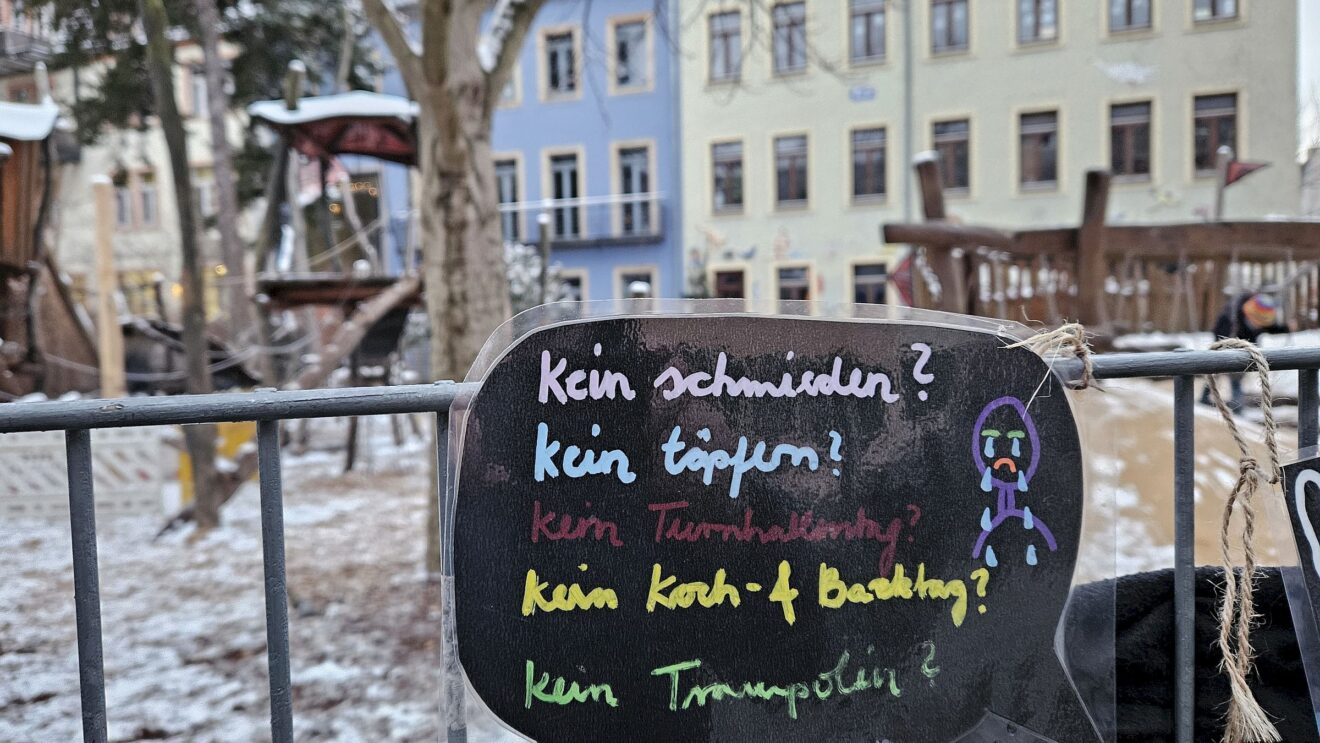 Kein schmieden?
kein töpfern?
kein Turnhallentag?
kein Koch- & Backtag?
kein Trampolin?